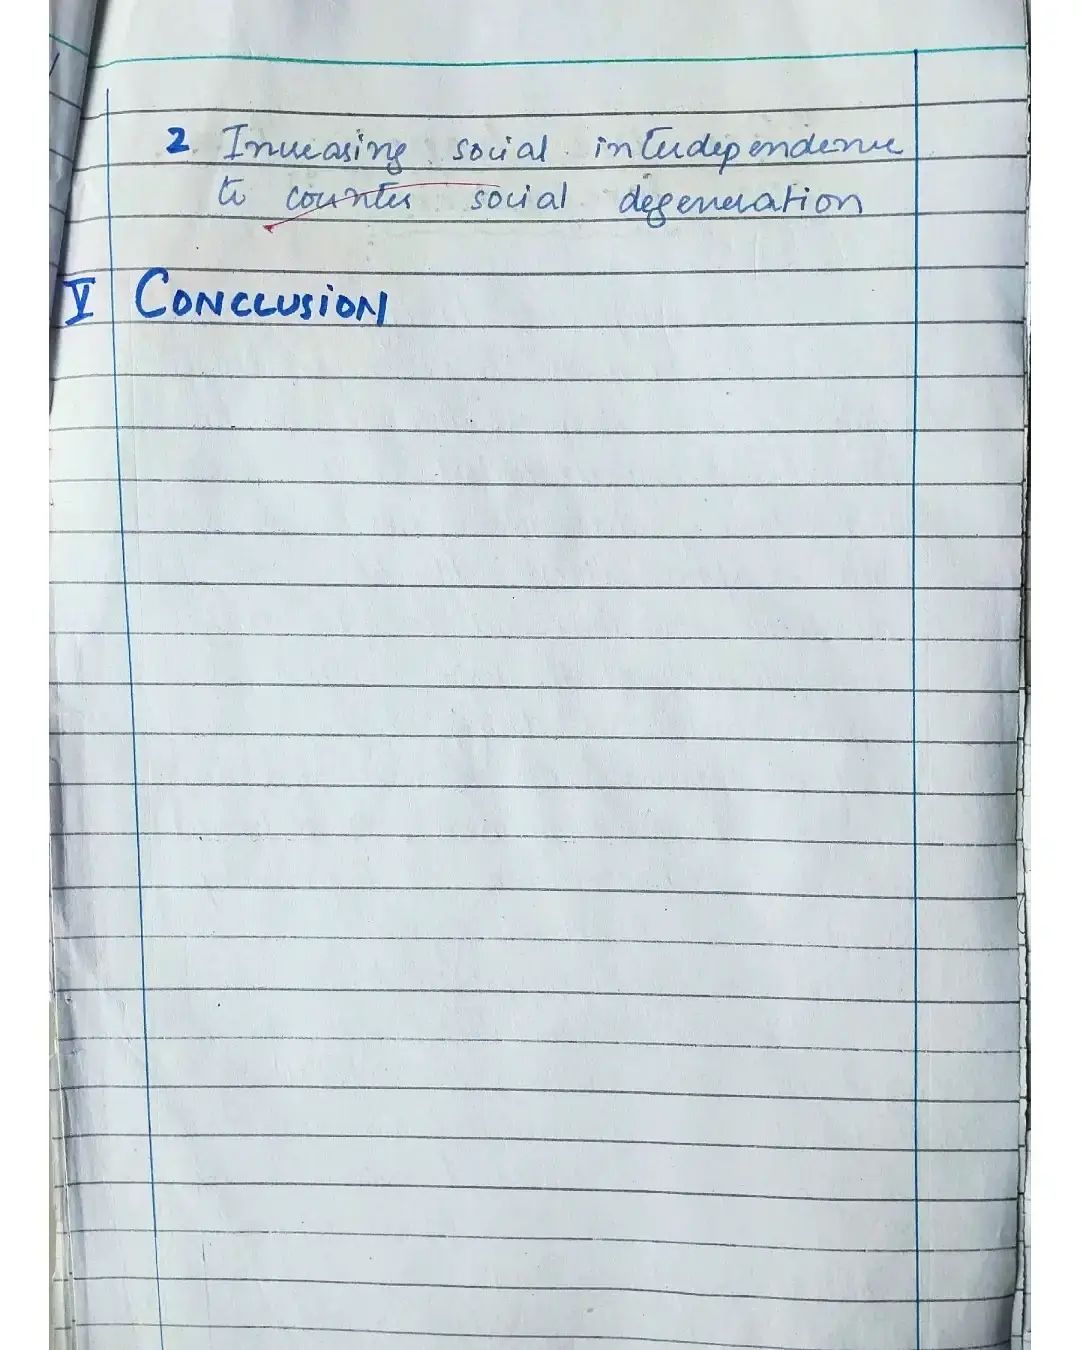 2 Increasing social interdependence
to counter social degeneration
V CONCLUSION